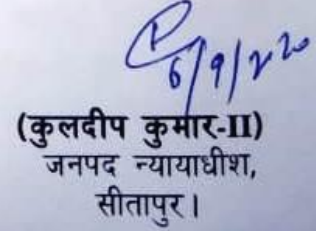 6/9/220
(कुलदीप कुमार-II)
जनपद न्यायाधीश,
सीतापुर।